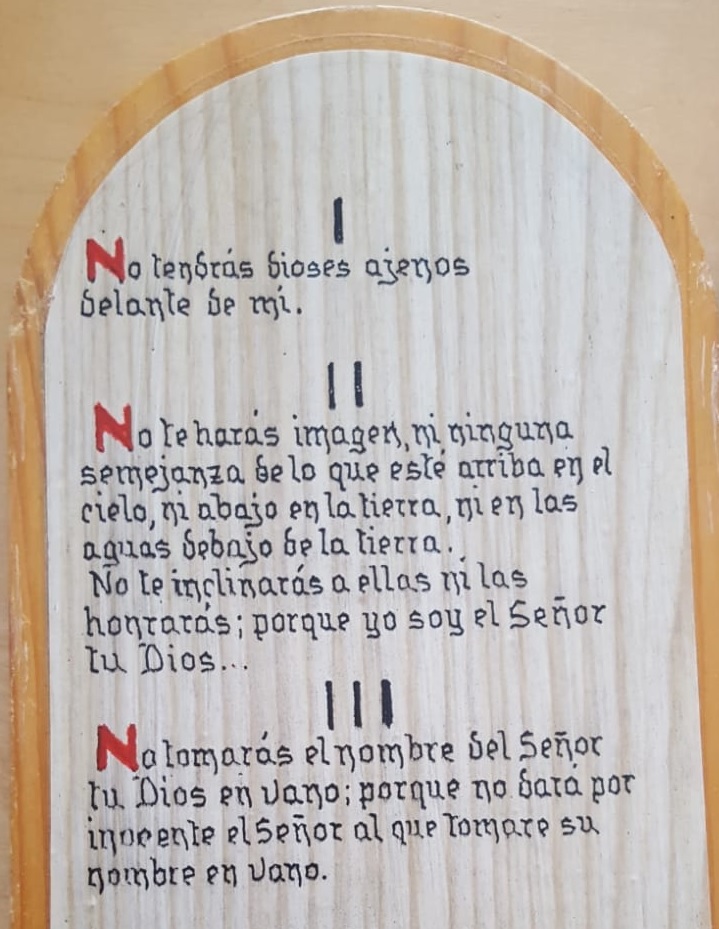 I
No tendrás dioses ajenos
delante de mí.
II
No te harás imagen, ni ninguna
semejanza de lo que esté arriba en el
cielo, ni abajo en la tierra, ni en las
aguas debajo de la tierra.
No te inclinarás a ellas ni las
honrarás; porque yo soy el Señor
tu Dios...
III
No tomarás el nombre del Señor
tu Dios en vano; porque no dará por
inocente el Señor al que tomare su
nombre en vano.